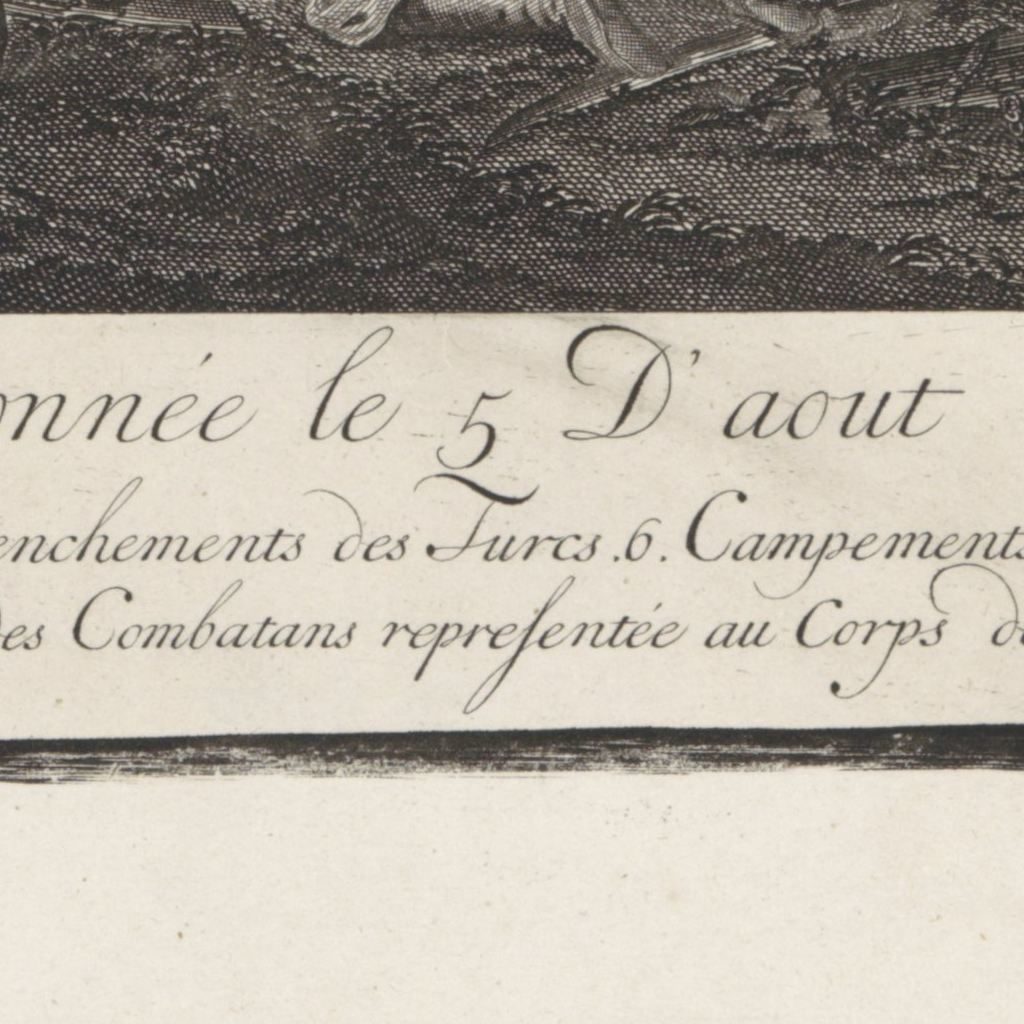 onnée le 5 D'aout
enchements des Turcs .6. Campements
des Combatans repreſentée au Corps de